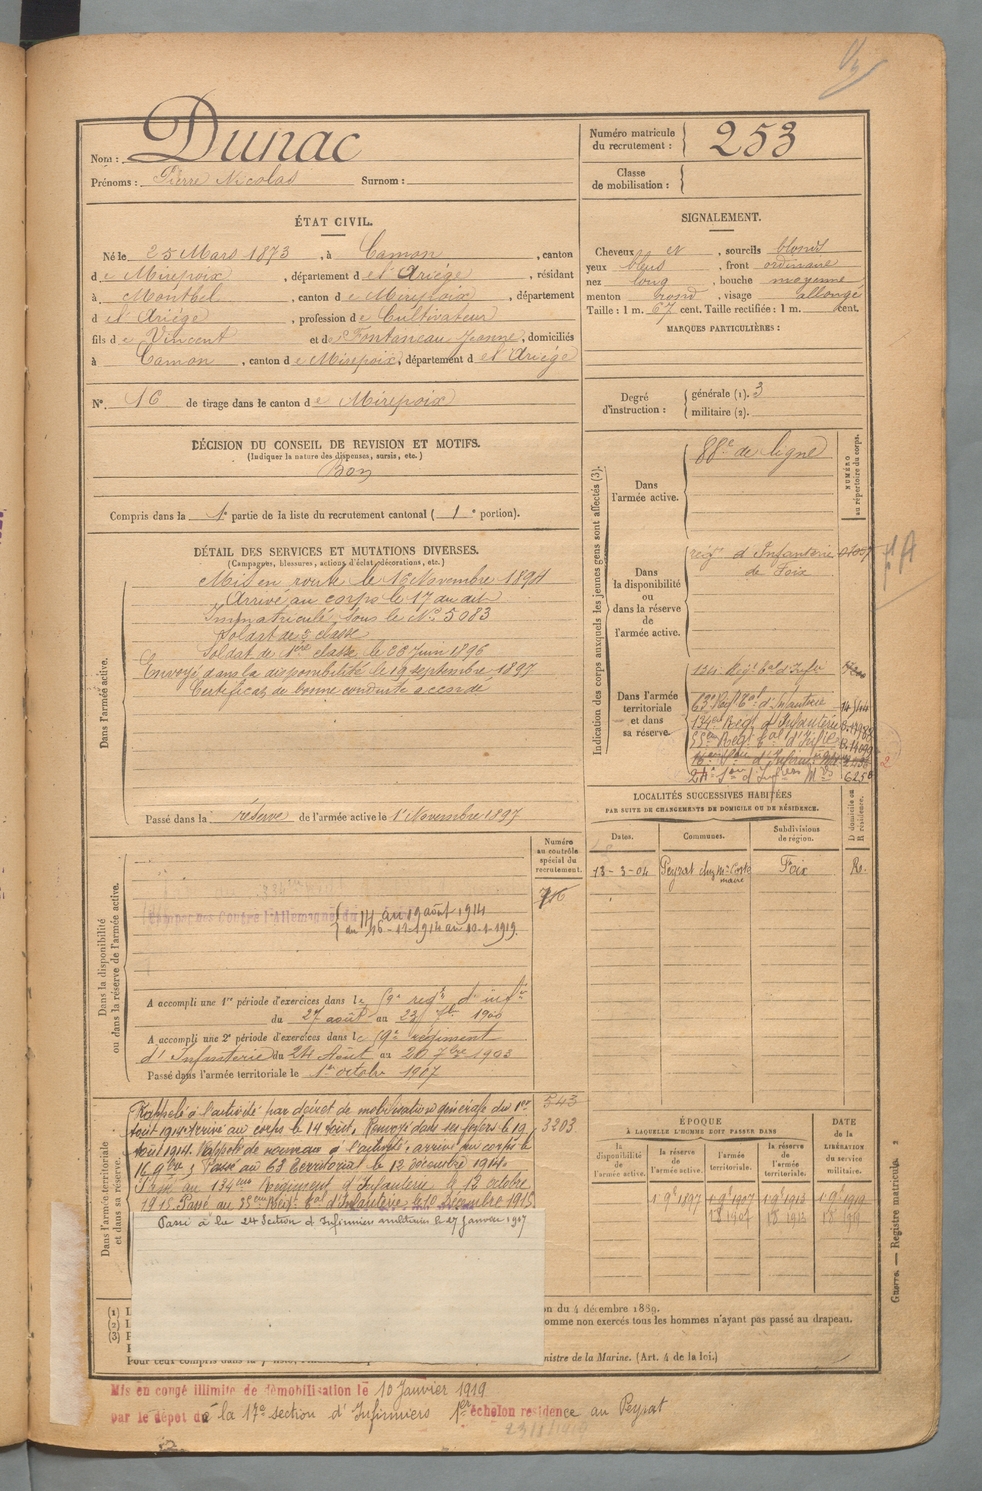 Nom : Dunac
Prénoms : Pierre Nicolas Surnom :
Numéro matricule du recrutement : 253
Classe de mobilisation :
ÉTAT CIVIL.
Né le 25 Mars 1873, à Camon, canton
d e Mirepoix, département d e l'Ariège, résidant
à Montbel, canton d e Mirepoix, département
d e l'Ariège, profession de Cultivateur
fils d e Vincent et de Fontaneau Jeanne, domiciliés
à Camon, canton d e Mirepoix, département d e l'Ariège
N° 16 de tirage dans le canton d e Mirepoix
SIGNALEMENT.
Cheveux et, sourcils blonds
yeux bleus, front ordinaire
nez long, bouche moyenne
menton rond, visage allongé
Taille : 1 m. 67 cent. Taille rectifiée : 1 m. cent.
MARQUES PARTICULIÈRES :
Degré d'instruction : générale (1). 3
militaire (2).
DÉCISION DU CONSEIL DE REVISION ET MOTIFS.
(Indiquer la nature des dispenses, sursis, etc.)
Bon
Compris dans la 1e partie de la liste du recrutement cantonal ( 1e portion).
DÉTAIL DES SERVICES ET MUTATIONS DIVERSES.
(Campagnes, blessures, actions d'éclat, décorations, etc.)
Dans l'armée active.
Mis en route le 16 Novembre 1894
Arrivé au corps le 17 du dit
Immatriculé sous le N° 5083
Soldat de 2e classe
Soldat de 1ère classe le 20 Juin 1896
Envoyé dans la disponibilité le 19 septembre 1897
Certificat de bonne conduite accordé
Passé dans la réserve de l'armée active le 1er Novembre 1897
Indication des corps auxquels les jeunes gens sont affectés (3).
NUMÉRO au répertoire du corps.
Dans l'armée active.
88e de ligne
Dans la disponibilité ou dans la réserve de l'armée active.
regt d'Infanterie
de Foix
Dans l'armée territoriale et dans sa réserve.
124 Regt tal d'Infie
63e Regt tal d'Infanterie
134em Regt d'Infanterie
35em Regt tal d'Infie
24e Son d'Infiers Mres 6250
LOCALITÉS SUCCESSIVES HABITÉES
PAR SUITE DE CHANGEMENTS DE DOMICILE OU DE RÉSIDENCE.
Dates. Communes. Subdivisions de région. D domicile ou R résidence.
18-3-04 Peyrat chez Mr Corte maire Foix R.
Numéro au contrôle spécial du recrutement.
716
Dans la disponibilité ou dans la réserve de l'armée active.
Campagnes contre l'Allemagne du 14 au 19 août 1914
du 16-12-1914 au 10-1-1919.
A accompli une 1re période d'exercices dans le 59e regt d'infie
du 27 août au 23 7bre 1900
A accompli une 2e période d'exercices dans le 59e régiment
d'Infanterie du 24 Août au 20 7bre 1903
Passé dans l'armée territoriale le 1er octobre 1907
Dans l'armée territoriale et dans sa réserve.
543
3203
Rappelé à l'activité par décret de mobilisation générale du 1er
Août 1914. Arrivé au corps le 14 août. Renvoyé dans ses foyers le 19
Août 1914. Rappelé de nouveau à l'activité, arrivé au corps le
16 9bre. Passé au 63 territorial le 12 décembre 1914.
Passé au 134eme Régiment d'Infanterie le 13 octobre
1915. Passé au 35eme Regt tal d'Infanterie le 10 Décembre 1915
Passé à la 24 Section d'Infirmiers militaires le 27 janvier 1917
ÉPOQUE
À LAQUELLE L'HOMME DOIT PASSER DANS
la disponibilité de l'armée active. la réserve de l'armée active. l'armée territoriale. la réserve de l'armée territoriale. DATE de la LIBÉRATION du service militaire.
1 9e 1897 1 9e 1907 1 9e 1913 1 9e 1919
(1)
(2)
(3)
on du 4 décembre 1889.
omme non exercés tous les hommes n'ayant pas passé au drapeau.
inistre de la Marine. (Art. 4 de la loi.)
Guerre. — Registre matricule. 2
Mis en congé illimité de démobilisation le 10 Janvier 1919
par le dépôt de à la 17e section d'Infirmiers 1er échelon résidence au Peyrat